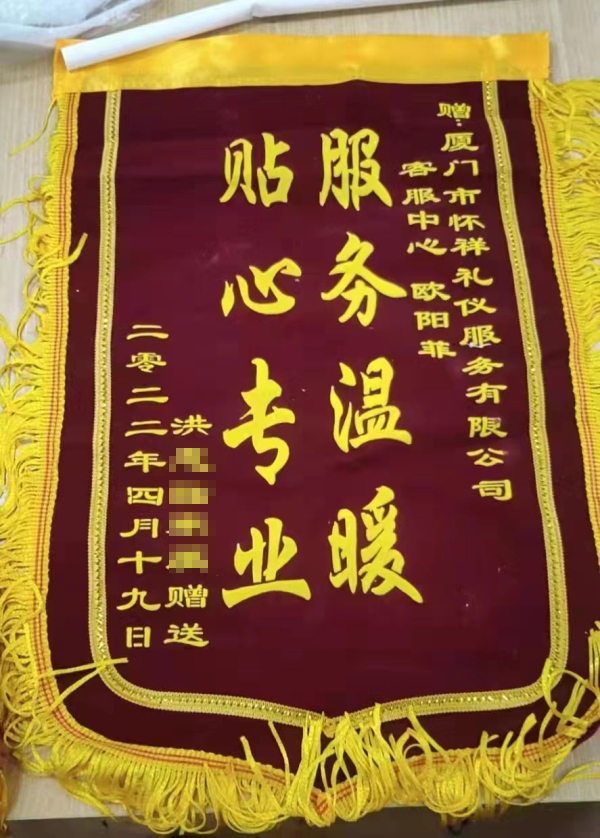 赠:厦门市怀祥礼仪服务有限公司
客服中心 欧阳菲
服务温暖
贴心专业
洪 赠送
二零二二年四月十九日